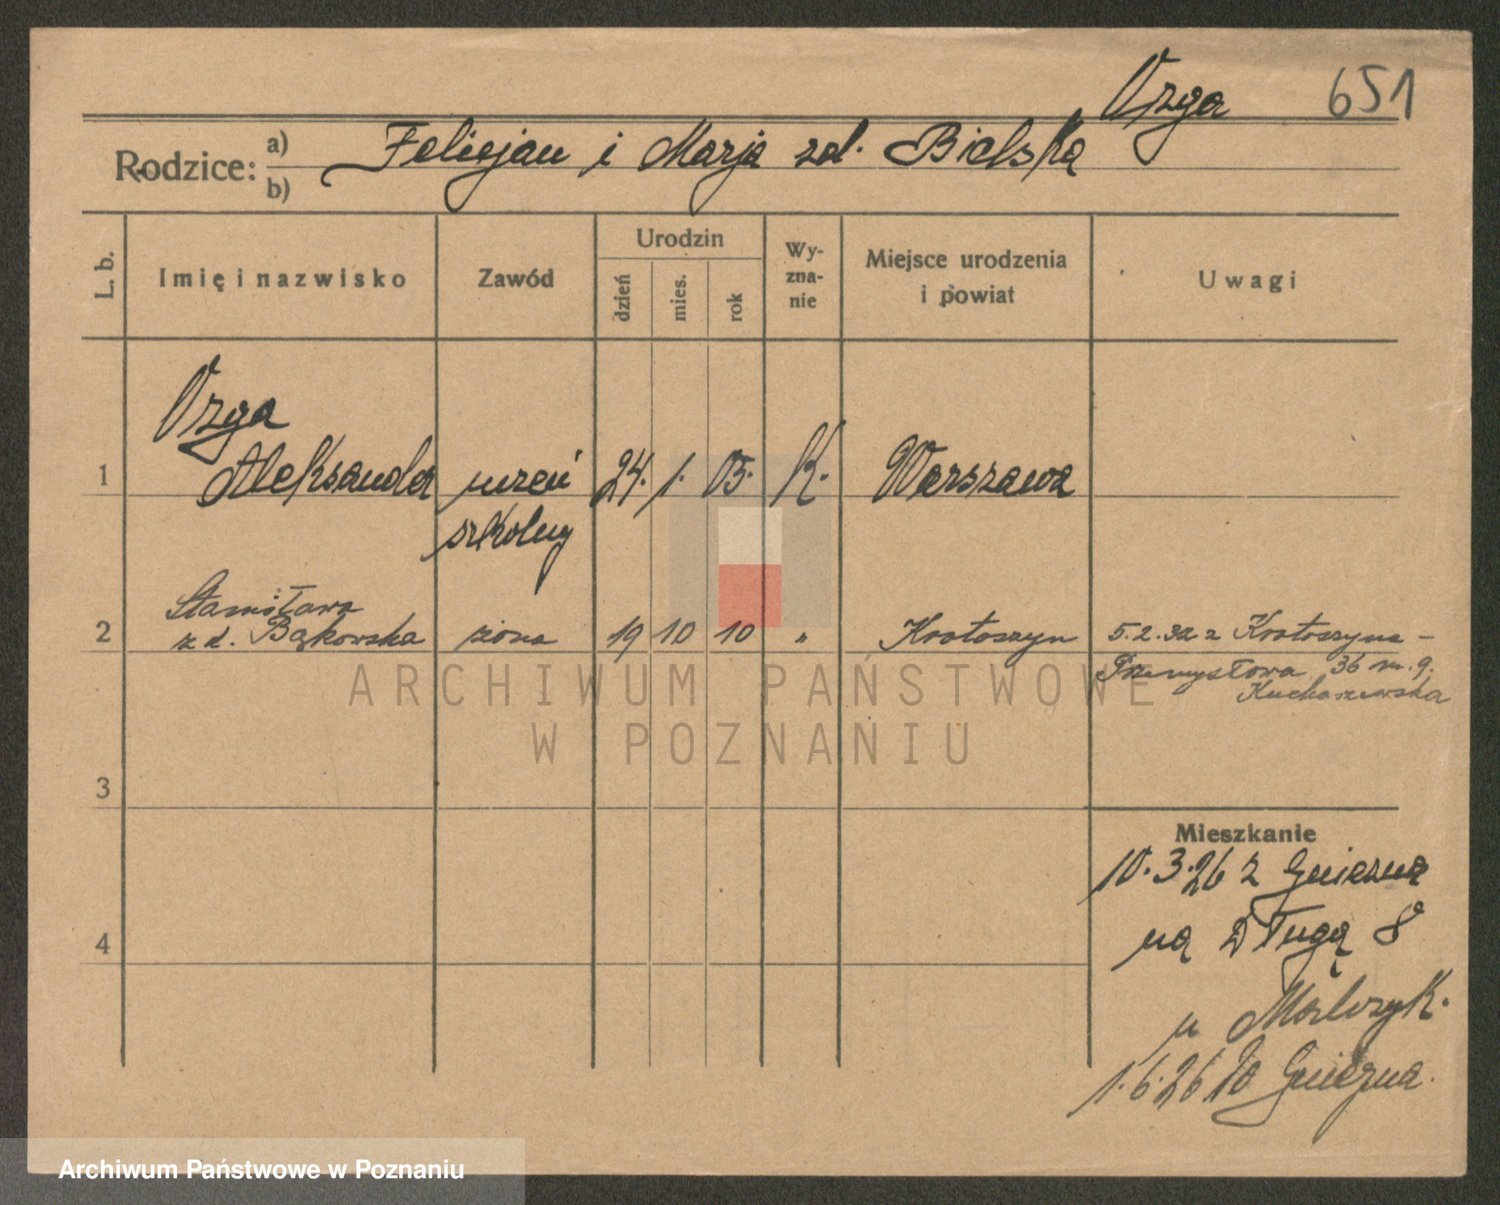 Ozga 651
Rodzice: a) Felicjan i Marja zd. Bielska
b)
L. b. Imię i nazwisko Zawód Urodzin dzień mies. rok Wyznanie Miejsce urodzenia i powiat Uwagi
Ozga
1 Aleksander uczeń 24. 1. 05. K. Warszawa
szkolny
Stanisława
2 z d. Bąkowska żona 19 10 10 " Krotoszyn 5.2.32 z Krotoszyna –
Przemysłowa 36 m. 9.
Kucharzewska
3
Mieszkanie
10.3.26 z Gniezna
4 na Długą 8
u Malczyk.
1.6.26 do Gniezna.
ARCHIWUM PAŃSTWOWE
W POZNANIU
Archiwum Państwowe w Poznaniu